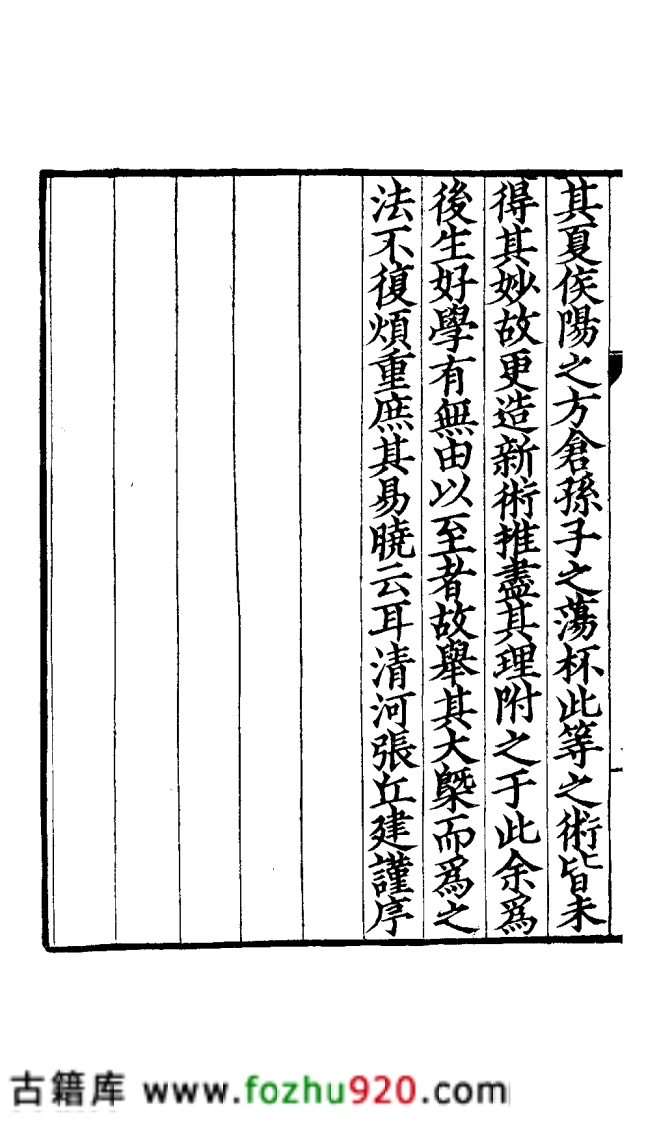 其夏侯陽之方倉孫子之蕩杯此等之術皆未
得其妙故更造新術推盡其理附之于此余為
後生好學有無由以至者故舉其大槩而為之
法不復煩重庶其易曉云耳清河張丘建謹序
古籍库 www.fozhu920.com